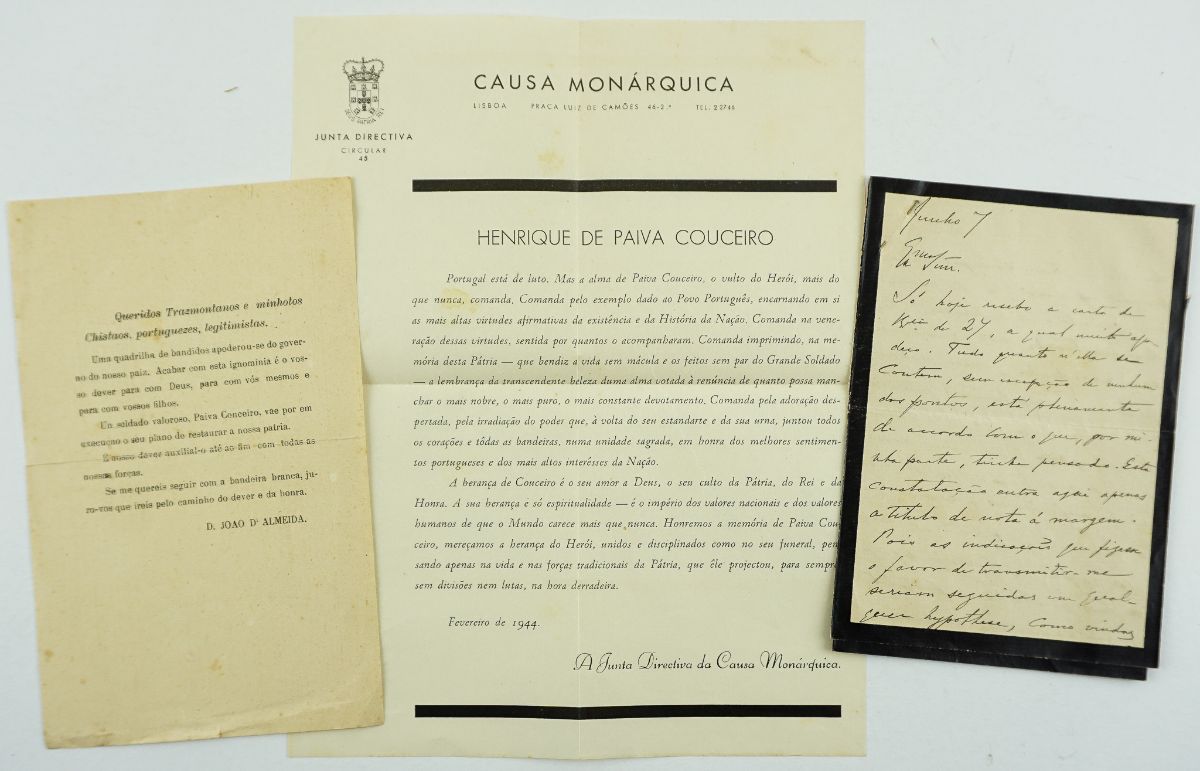 Queridos Trazmontanos e minhotos
Chistaos, portuguezes, legitimistas.
Uma quadrilha de bandidos apoderou-se do gover-
no do nosso paiz. Acabar com esta ignominia é o vos-
so dever para com Deus, para com vós mesmos e
para com vossos filhos.
Un soldado valoroso, Paiva Conceiro, vae por em
execuçao o seu plano de restaurar a nossa patria.
E nosso dever auxilial-o até ao fim com todas as
nossas forças.
Se me quereis seguir com a bandeira branca, ju-
ro-vos que ireis pelo caminho do dever e da honra.
D. JOAO D' ALMEIDA.
CAUSA MONÁRQUICA
LISBOA PRAÇA LUIZ DE CAMÕES 46-2.º TEL. 22746
JUNTA DIRECTIVA
CIRCULAR
45
HENRIQUE DE PAIVA COUCEIRO
Portugal está de luto. Mas a alma de Paiva Couceiro, o vulto do Herói, mais do
que nunca, comanda. Comanda pelo exemplo dado ao Povo Português, encarnando em si
as mais altas virtudes afirmativas da existência e da História da Nação. Comanda na vene-
ração dessas virtudes, sentida por quantos o acompanharam. Comanda imprimindo, na me-
mória desta Pátria — que bendiz a vida sem mácula e os feitos sem par do Grande Soldado
— a lembrança da transcendente beleza duma alma votada à renúncia de quanto possa man-
char o mais nobre, o mais puro, o mais constante devotamento. Comanda pela adoração des-
pertada, pela irradiação do poder que, à volta do seu estandarte e da sua urna, juntou todos
os corações e tôdas as bandeiras, numa unidade sagrada, em honra dos melhores sentimen-
tos portugueses e dos mais altos interêsses da Nação.
A herança de Couceiro é o seu amor a Deus, o seu culto da Pátria, do Rei e da
Honra. A sua herança é só espiritualidade — é o império dos valores nacionais e dos valores
humanos de que o Mundo carece mais que nunca. Honremos a memória de Paiva Cou-
ceiro, mereçamos a herança do Herói, unidos e disciplinados como no seu funeral, pen-
sando apenas na vida e nas forças tradicionais da Pátria, que êle projectou, para sempre,
sem divisões nem lutas, na hora derradeira.
Fevereiro de 1944.
A Junta Directiva da Causa Monárquica.
Junho 7
Só hoje recebo a carta de
de 27, a qual muito agra
deço. Tudo quanto n'ella se
contem, sem excepção de nenhum
dos pontos, está plenamente
de accordo com o que, por mi-
nha parte, tinha pensado. Esta
constatação entra aqui apenas
a titulo de nota á margem.
Pois as indicações que fizesse
o favor de transmittir-me
seriam seguidas em qual-
quer hypothese, como vindas